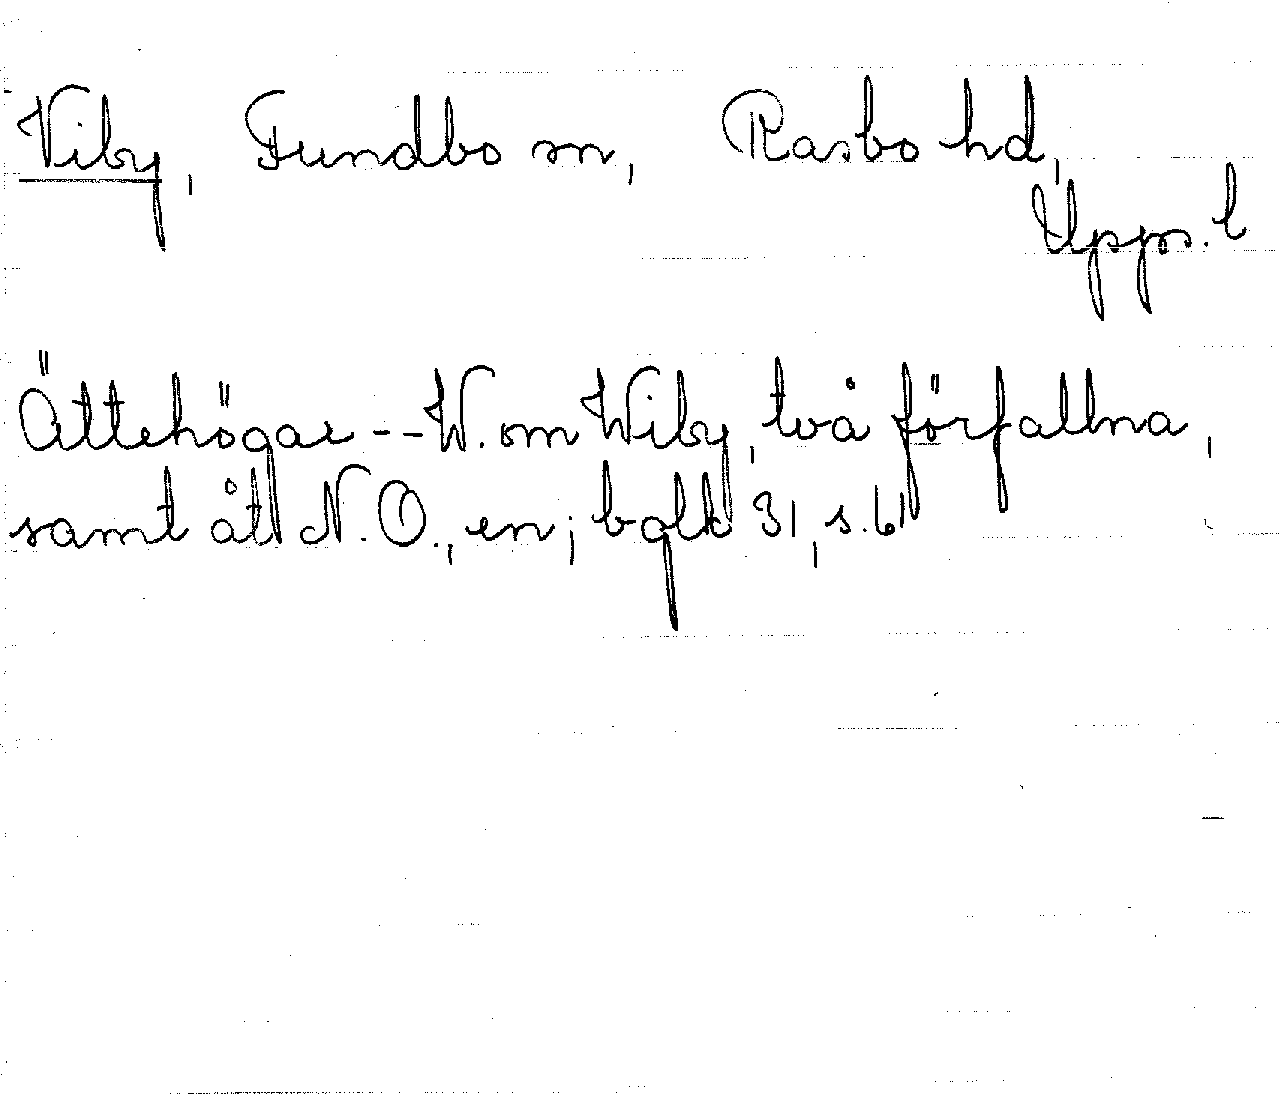 Viby, Fundbo sn, Rasbo hd,
Upps. l
Ättehögar -- W. om Wiby, två förfallna,
samt åt N.O., en; bqlk 31, s. 61